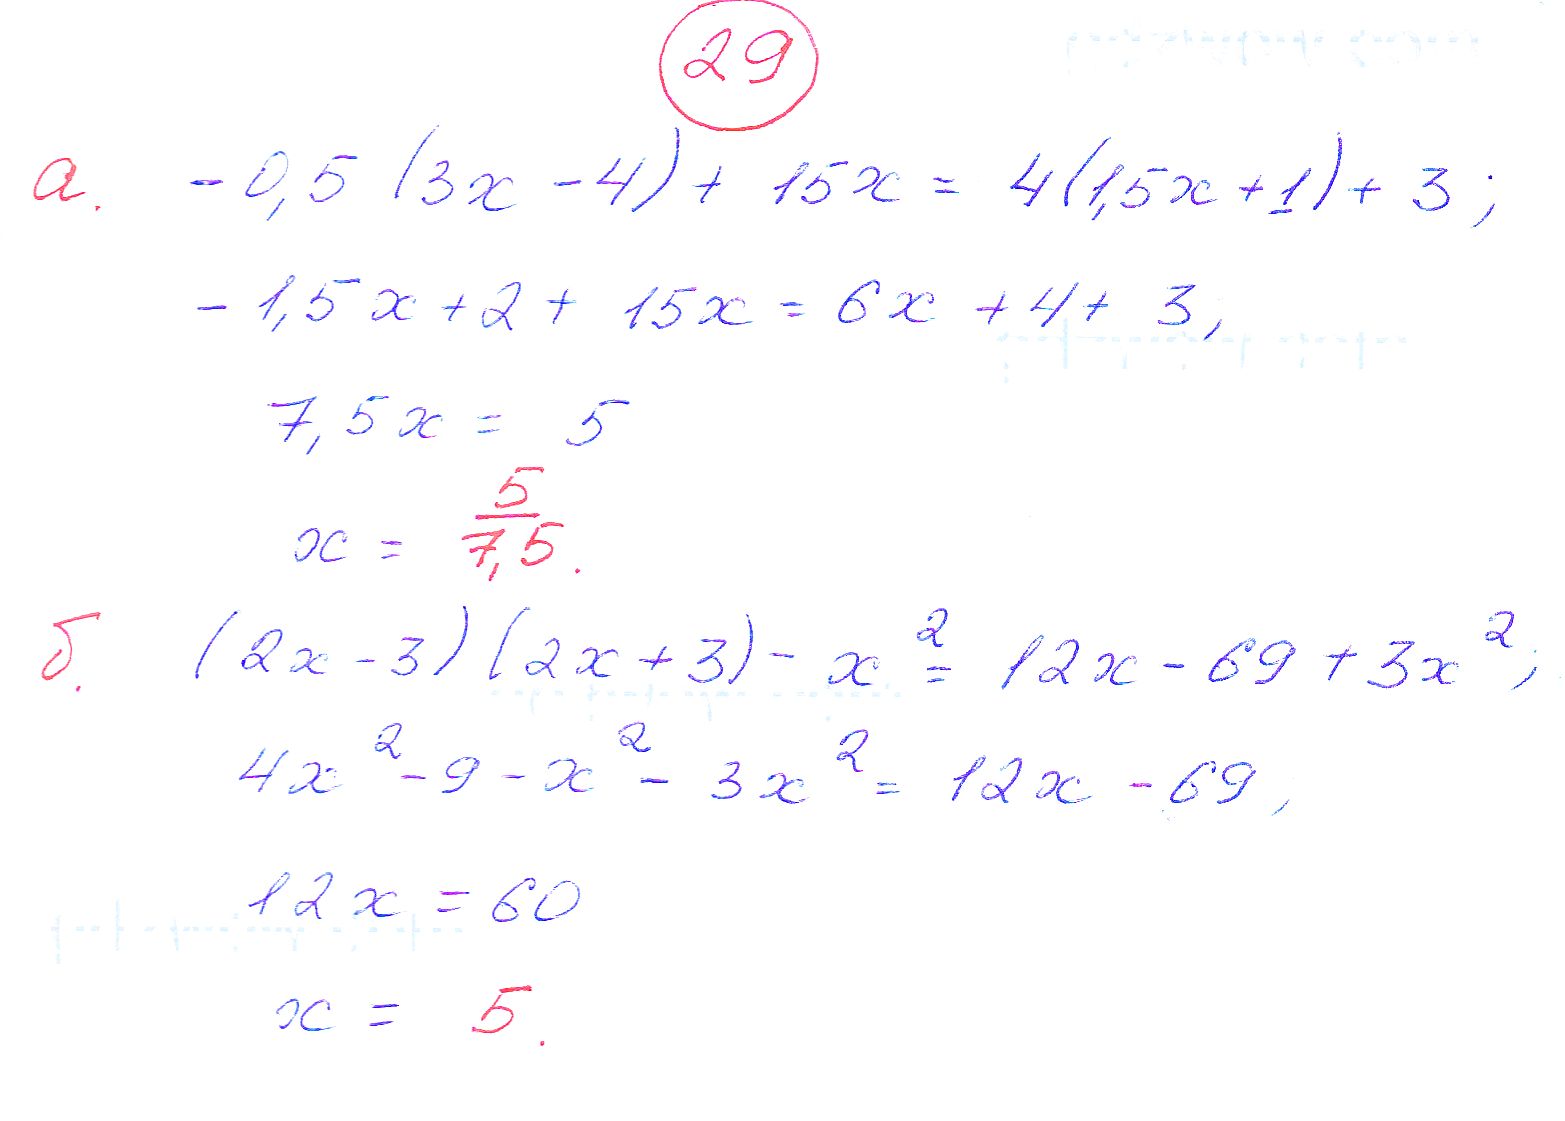 29
а. - 0,5 (3x - 4) + 15x = 4(1,5x + 1) + 3;
- 1,5x + 2 + 15x = 6x + 4 + 3;
7,5x = 5
x = 5/7,5.
б. (2x - 3)(2x + 3) - x² = 12x - 69 + 3x²;
4x² - 9 - x² - 3x² = 12x - 69;
12x = 60
x = 5.